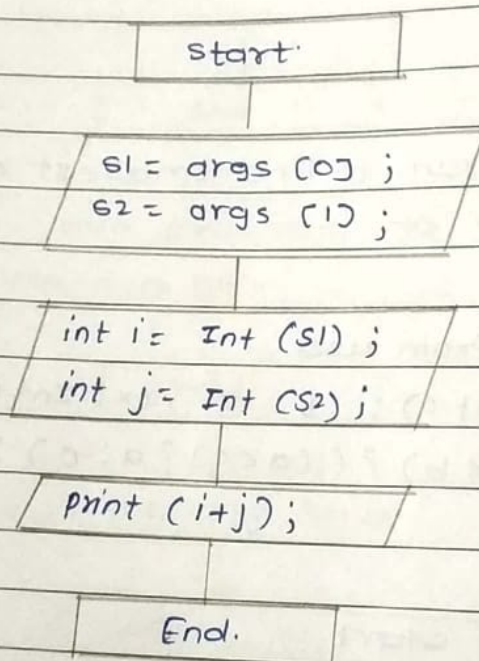 start.
S1 = args [0] ;
S2 = args [1] ;
int i = Int (S1) ;
int j = Int (S2) ;
print (i+j) ;
End.